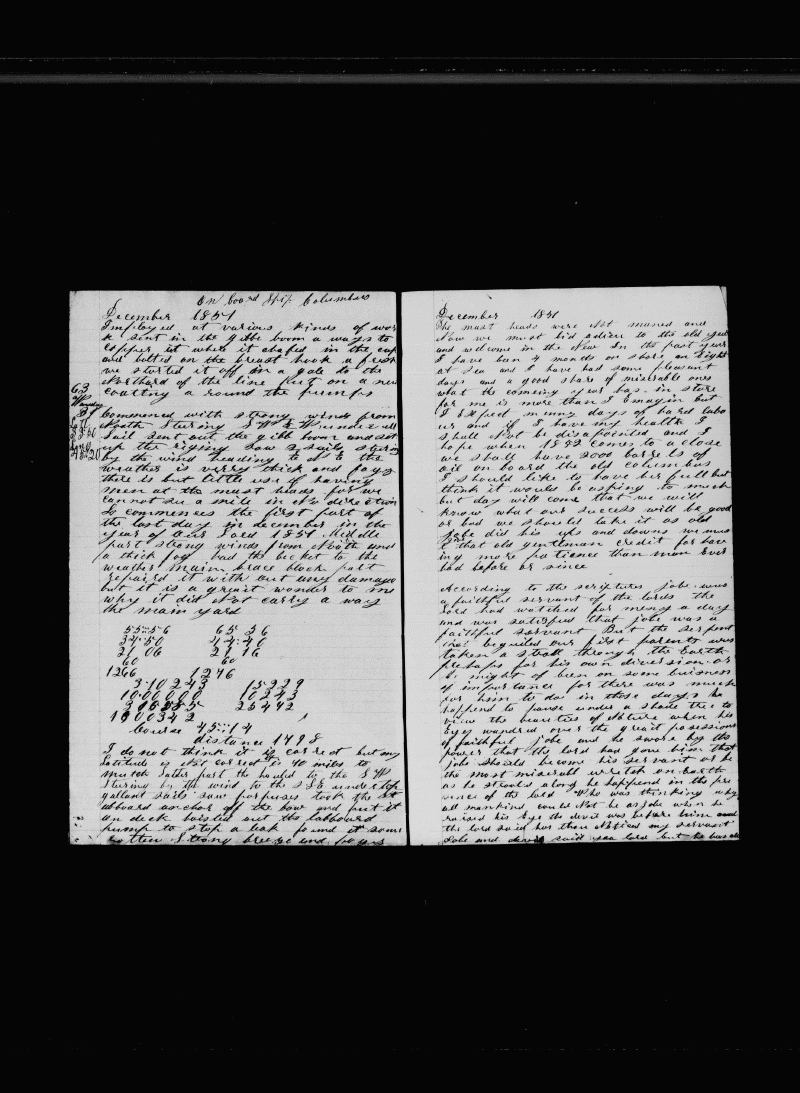 On board Ship Columbus
December 1851
Employed at various kinds of wor
k sent in the gibe boom a ways to
copper it where it chafed in the cap
and bolted on the breast hook a fresh
we started it off in a gale to the
Northard of the line Put on a new
coatting a round the pumps
63
Commenced with strong winds from
North Stering S W & W under all
Sail sent out the gibb boom and set
up the riging saw 2 sails stering
by the wind heading to the
weather is verry thick and foggy
there is but little use of having
men at the mast heads for we
cannot see a mile in No direction
So commences the first part of
the last day in december in the
year of Our Lord 1851 Middle
part strong winds from North and
a thick fog had the becket to the
weather main brace block part
repaird it with out any damage
but it is a greait wonder to me
why it did Not carry a way
the main yard
55 56 65 36
34 50 44 20
21 06 21 16
60 60
1266 1276
3.10243 15229
10.00000 10243
25472
Course 45 14
distance 1798
I do not think it is correct but my
Latitude is Not correct is 40 miles to
much Latter part the headed to the S W
Stering by the wind to the S S E under top
gallant sails saw porpuses took the St
abboard anchor off the bow and put it
on deck hoisted out the labboard
pump to stop a leak found it some
rotten Strong breeze and foggy
December 1851
The mast heads were Not maned and
Now we must bid adieu to the old year
and wellcome in the New In the past year
I have ben 4 months on shore an eight
at Sea and I have had some pleasant
days and a good share of miserable ones
what the comeing year has in store
for me is more than I Emagin but
I Expect menny days of hard labo
ur and if I have my health I
shall Not be disapointed and I
hope when 1852 comes to a close
we shall have 2000 barrels of
oil on board the old columbus
I should like to have her full but
think it would be asking to much
but day will come that we will
know what our success will be good
or bad we should take it as old
jobe did his ups and downs we mus
t that old gentleman credit for have
ing more patience than man Ever
had before or since
According to the scriptures jobe was
a faithful servant of the lords the
Lord had watched for meny a day
and was satisfied that jobe was a
faithful servant But the serpent
that beguiled our first parents was
taken a stroll through the Earth
prehaps for his own diversion or
it might of been on some buisness
of importance for there was much
for him to do in those days he
happend to pause under a shade tree to
view the beauties of Nature when his
Eyes wandred over the great posessions
of faithful jobe and he swore by the
power that the lord had gave him that
jobe should become his servant or be
the most miserabl wretch on Earth
as he strould along he happend in the pre
sence of the lord Who was thinking why
all mankind could Not be as jobe when he
raised his Eyes the devil was before him and
the lord said has thou Noticed my servant
Jobe and devil said yea lord but he has